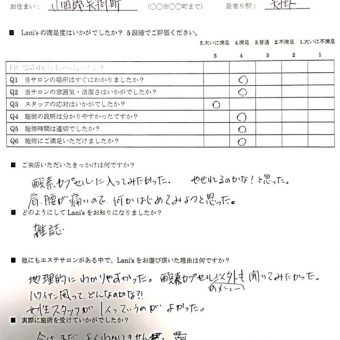 お住まい： 小田郡矢掛町 （〇〇市〇〇町まで） 最寄り駅： 矢掛
■ Lani'sの満足度はいかがでしたか？ 5段階でご評価ください。
5.大いに満足 4.満足 3.普通 2.不満足 1.大いに不満足
Q1 当サロンの場所はすぐにわかりましたか？ 〇
Q2 当サロンの雰囲気・清潔さはいかがですか？ 〇
Q3 スタッフの応対はいかがでしたか？ 〇
Q4 施術の説明は分かりやすかったですか？ 〇
Q5 施術時間は適切でしたか？ 〇
Q6 施術にご満足いただけましたか？ 〇
■ ご来店いただいたきっかけは何ですか？
酸素カプセルに入ってみたかった。 やせれるのかな？と思った。
肩、腰が痛いので、何かはじめてみようと思った。
■ どのようにしてLani'sをお知りになりましたか？
雑誌
■ 他にもエステサロンがある中で、Lani'sをお選び頂いた理由は何ですか？
地理的にわかりやすかった。 酸素カプセルと外も聞いてみたかった。
のメニュー
ハワイアン風って、どんなのかな？！
女性スタッフが1人っていうのがよかった。
■ 実際に施術を受けていかがでしたか？